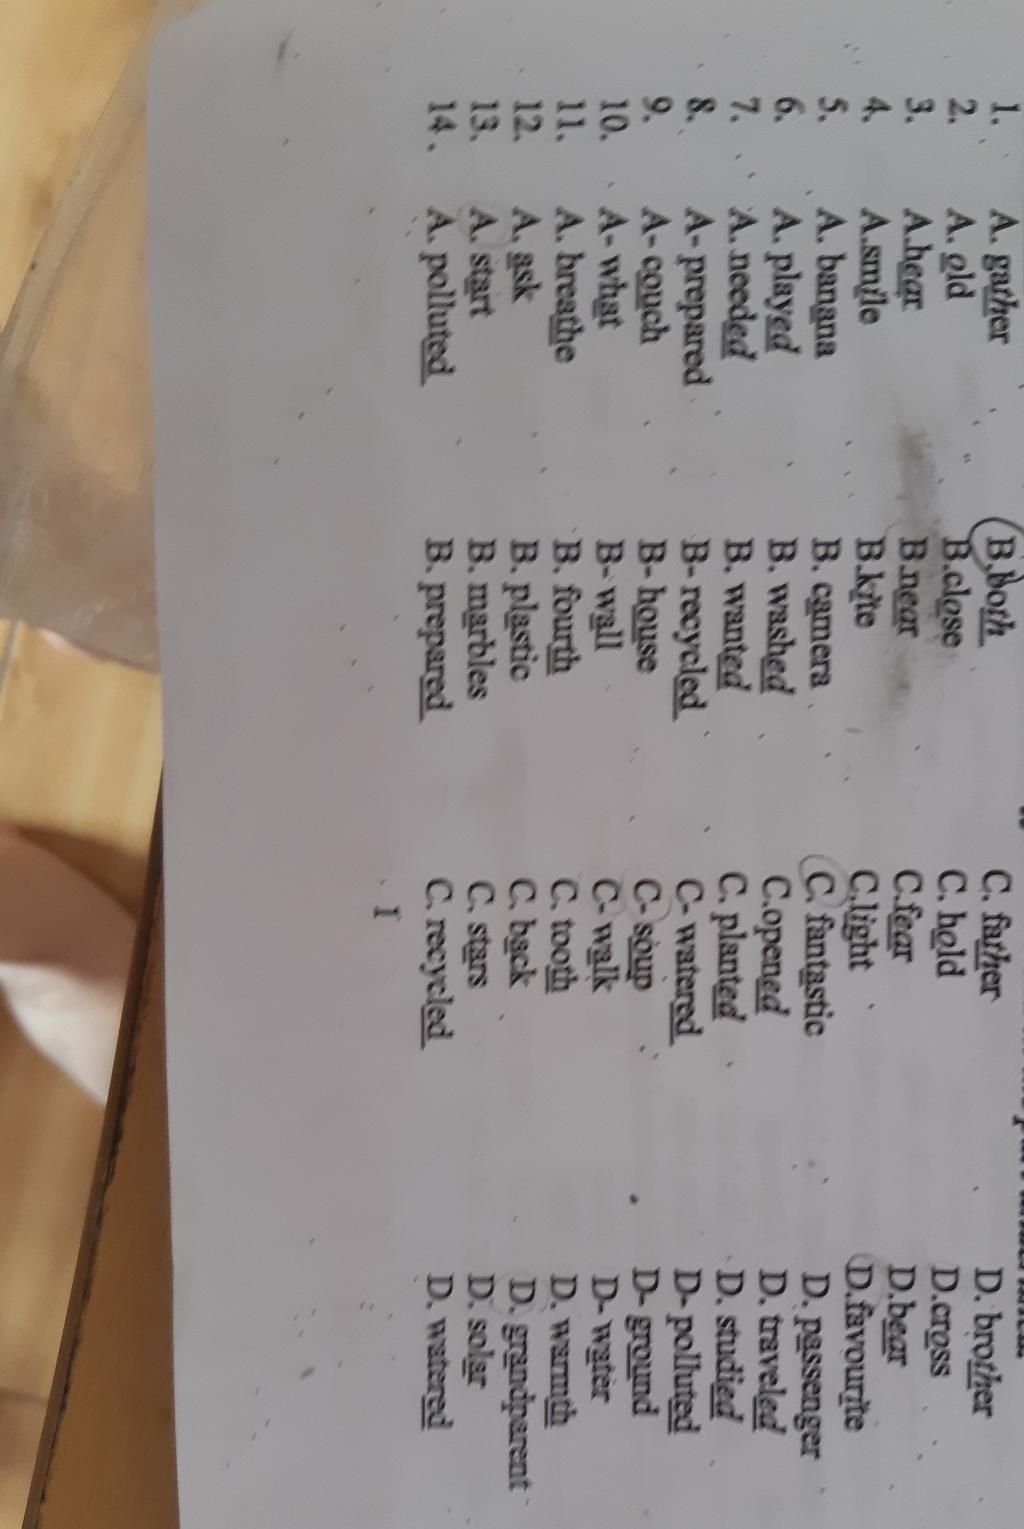 1. A. gather B.both C. father D. brother
2. A. old B.close C. hold D.cross
3. A.hear B.near C.fear D.bear
4. A.smile B.kite C.light D.favourite
5. A. banana B. camera C. fantastic D. passenger
6. A. played B. washed C.opened D. traveled
7. A. needed B. wanted C. planted D. studied
8. A- prepared B- recycled C- watered D- polluted
9. A- couch B- house C- soup D- ground
10. A- what B- wall C- walk D- water
11. A. breathe B. fourth C. tooth D. warmth
12. A. ask B. plastic C. back D. grandparent
13. A. start B. marbles C. stars D. solar
14. A. polluted B. prepared C. recycled D. watered
I